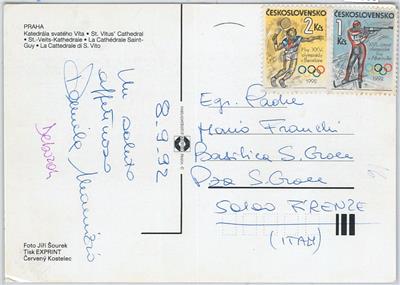 PRAHA
Katedrála svatého Víta • St. Vitus' Cathedral
• St.-Veits-Kathedrale • La Cathédrale Saint-
Guy • La Cattedrale di S. Vito
8.9.92
Un saluto
affettuoso
Daniela
Deborah
Foto Jiří Šourek
Tisk EXPRINT
Červený Kostelec
ČESKOSLOVENSKO
2 Kčs
Hry XXV.
olympiády
v Barceloně
1992
ČESKOSLOVENSKO
1 Kčs
1992
Egr. Padre
Mario Franchi
Basilica S. Croce
Pza S. Croce
50100 FIRENZE
(ITALY)